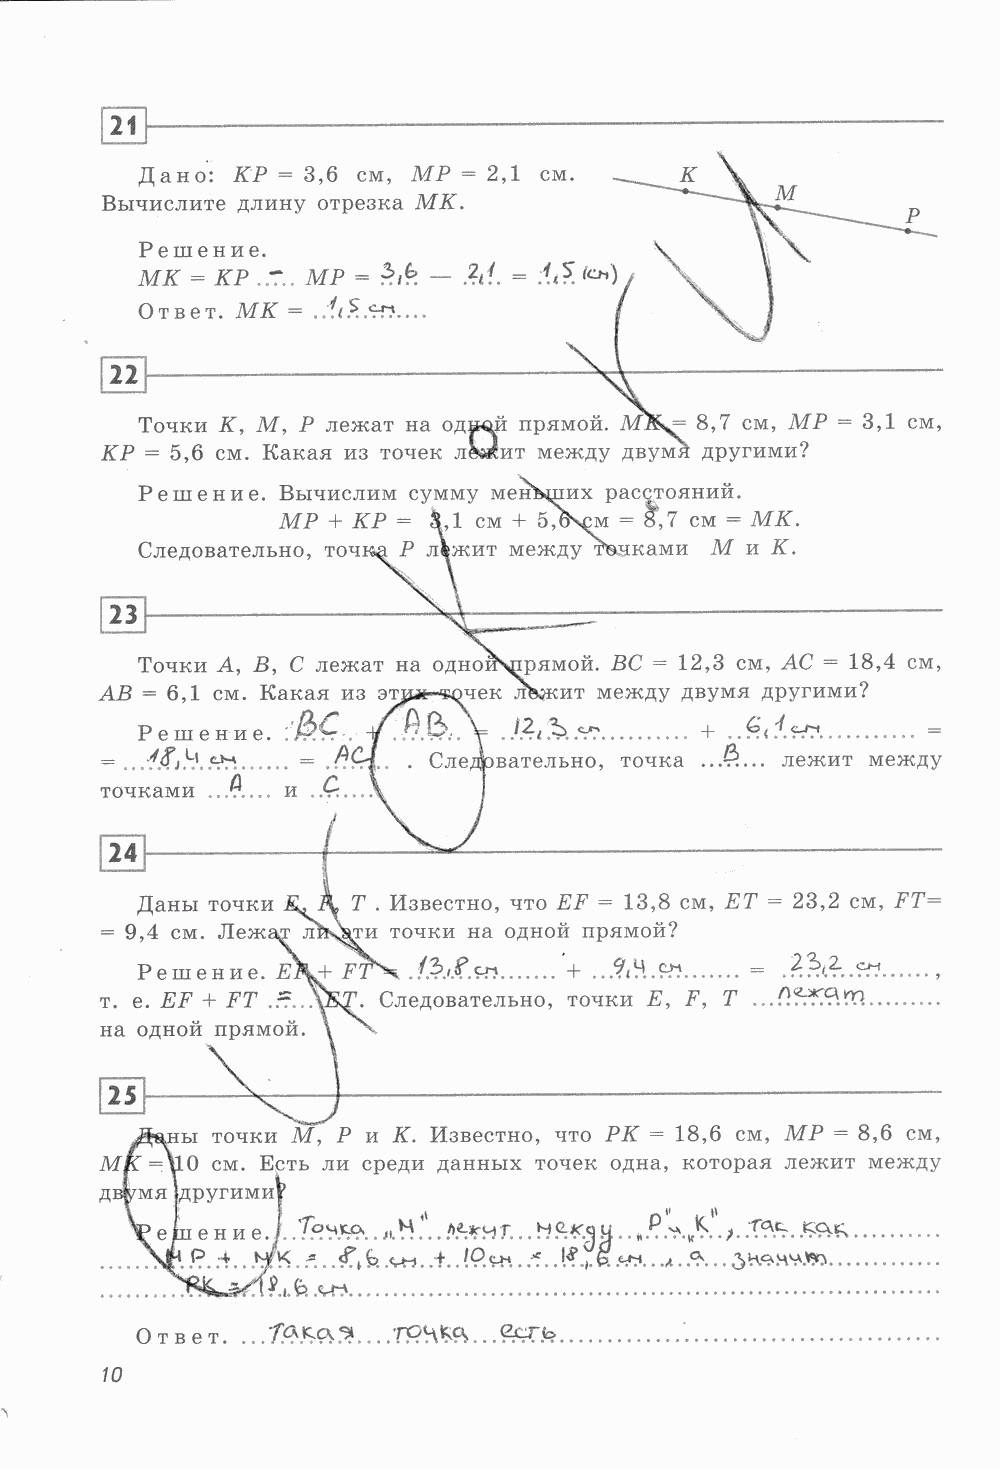 21
Дано: KP = 3,6 см, MP = 2,1 см.
Вычислите длину отрезка MK.
K
M
P
Решение.
MK = KP ..–.. MP = 3,6 — 2,1 = 1,5 (см)
Ответ. MK = 1,5 см
22
Точки K, M, P лежат на одной прямой. MK = 8,7 см, MP = 3,1 см,
KP = 5,6 см. Какая из точек лежит между двумя другими?
Решение. Вычислим сумму меньших расстояний.
MP + KP = 3,1 см + 5,6 см = 8,7 см = MK.
Следовательно, точка P лежит между точками M и K.
23
Точки A, B, C лежат на одной прямой. BC = 12,3 см, AC = 18,4 см,
AB = 6,1 см. Какая из этих точек лежит между двумя другими?
Решение. BC + AB = 12,3 см + 6,1 см =
= 18,4 см = AC . Следовательно, точка B лежит между
точками A и C
24
Даны точки E, F, T . Известно, что EF = 13,8 см, ET = 23,2 см, FT=
= 9,4 см. Лежат ли эти точки на одной прямой?
Решение. EF + FT = 13,8 см + 9,4 см = 23,2 см ,
т. е. EF + FT = ET. Следовательно, точки E, F, T лежат
на одной прямой.
25
Даны точки M, P и K. Известно, что PK = 18,6 см, MP = 8,6 см,
MK = 10 см. Есть ли среди данных точек одна, которая лежит между
двумя другими?
Решение. Точка „M" лежит между „P"и „K", так как
MP + MK = 8,6 см + 10см = 18,6 см , а значит
PK = 18,6 см
Ответ. такая точка есть
10